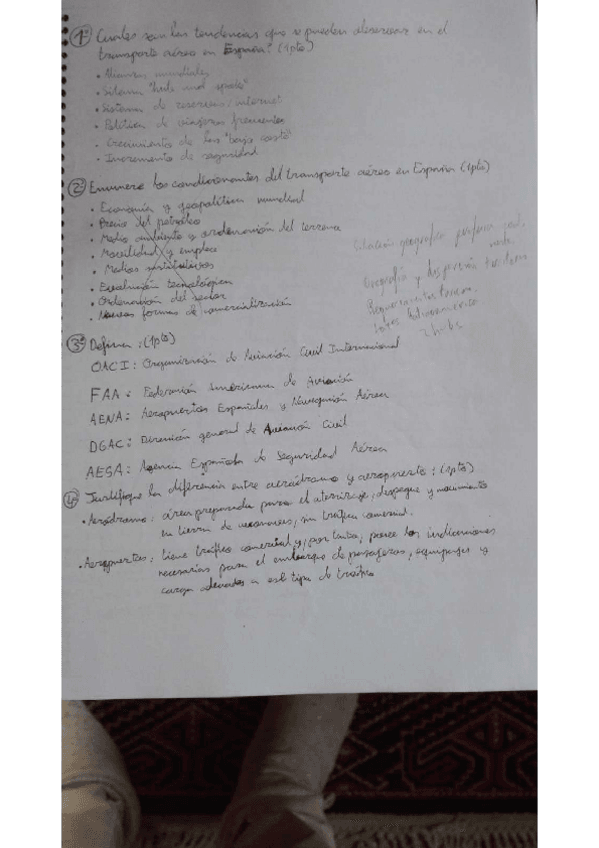 1º Cuales son las tendencias que se pueden observar en el
transporte aéreo en España? (1pto)
• Alianzas mundiales
• Sistema "hub and spoke"
• Sistema de reservas: internet
• Política de viajeros frecuentes
• Crecimiento de las "bajo coste"
• Incremento de seguridad
2º Enumera los condicionantes del transporte aéreo en España (1pto)
• Economía y geopolítica mundial
• Precio del petróleo
• Medio ambiente y ordenación del terreno
• Movilidad y empleo
• Medios sustitutivos
• Evolución tecnológica
• Ordenación del sector
• Nuevas formas de comercialización
Situación geográfica
Geografía y dispersión
2 hubs
3º Define: (1pto)
OACI: Organización de Aviación Civil Internacional
FAA: Federación Americana de Aviación
AENA: Aeropuertos Españoles y Navegación Aérea
DGAC: Dirección general de Aviación Civil
AESA: Agencia Española de Seguridad Aérea
4º Justifique la diferencia entre aeródromo y aeropuerto: (1pto)
• Aeródromo: área preparada para el aterrizaje, despegue y movimiento
en tierra de aeronaves, sin tráfico comercial.
• Aeropuertos: tiene tráfico comercial y, por tanto, posee las
necesarias para el embarque de pasajeros, equipajes y
carga a este tipo de tráfico